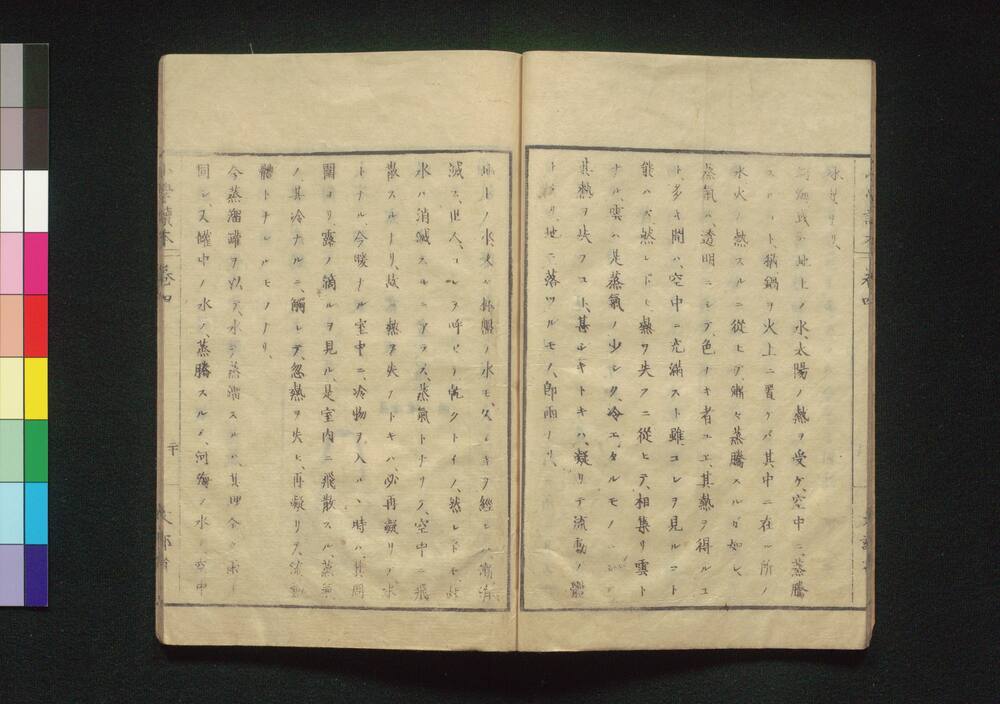 地上ノ水、太陽ノ熱ヲ受ケ、空中ニ、蒸騰
スルコト、猶、鍋ヲ火上ニ置ケバ、其中ニ在ル所ノ
水火ノ熱スルニ從ヒテ、漸々蒸騰スルガ如シ、
蒸氣ハ、透明ニシテ、色ナキ者ユエ、其熱ヲ得ルコ
ト、多キ間ハ、空中ニ充滿スト雖コレヲ見ルコト
能ハズ、然レドモ熱ヲ失フニ從ヒテ、相集リ雲ト
ナル、雲ハ、是蒸氣ノ少シク、冷エタルモノ
其熱ヲ失フコト、甚シキトキハ、凝リテ流動ノ體
トナリ、地ニ落ツルモノ、即雨ナリ、
地上ノ水、又ハ杯盤ノ水モ、久シキヲ經レバ漸消
滅ス、世人、コレヲ呼ビテ乾クトイフ、然レドモ、此
水ハ消滅スルニアラズ、蒸氣トナリテ、空中ニ飛
散スルナリ、故ニ熱ヲ失フトキハ、必再凝リテ水
トナル、今暖ナル室中ニ、冷物ヲ入ルヽ時ハ、其周
圍ヨリ露ノ滴ルヲ見ル、是室内ニ飛散スル、蒸氣
ノ其冷ナルニ、觸レテ、忽熱ヲ失ヒ、再凝リテ、流動
體トナレルモノナリ、
今蒸溜罐ヲ以テ、水ヲ蒸溜スルハ、其理全ク雨ト
同シ、又罐中ノ水ノ、蒸騰スルハ、河海ノ水ノ空中
小學讀本 卷四
二十
文部省